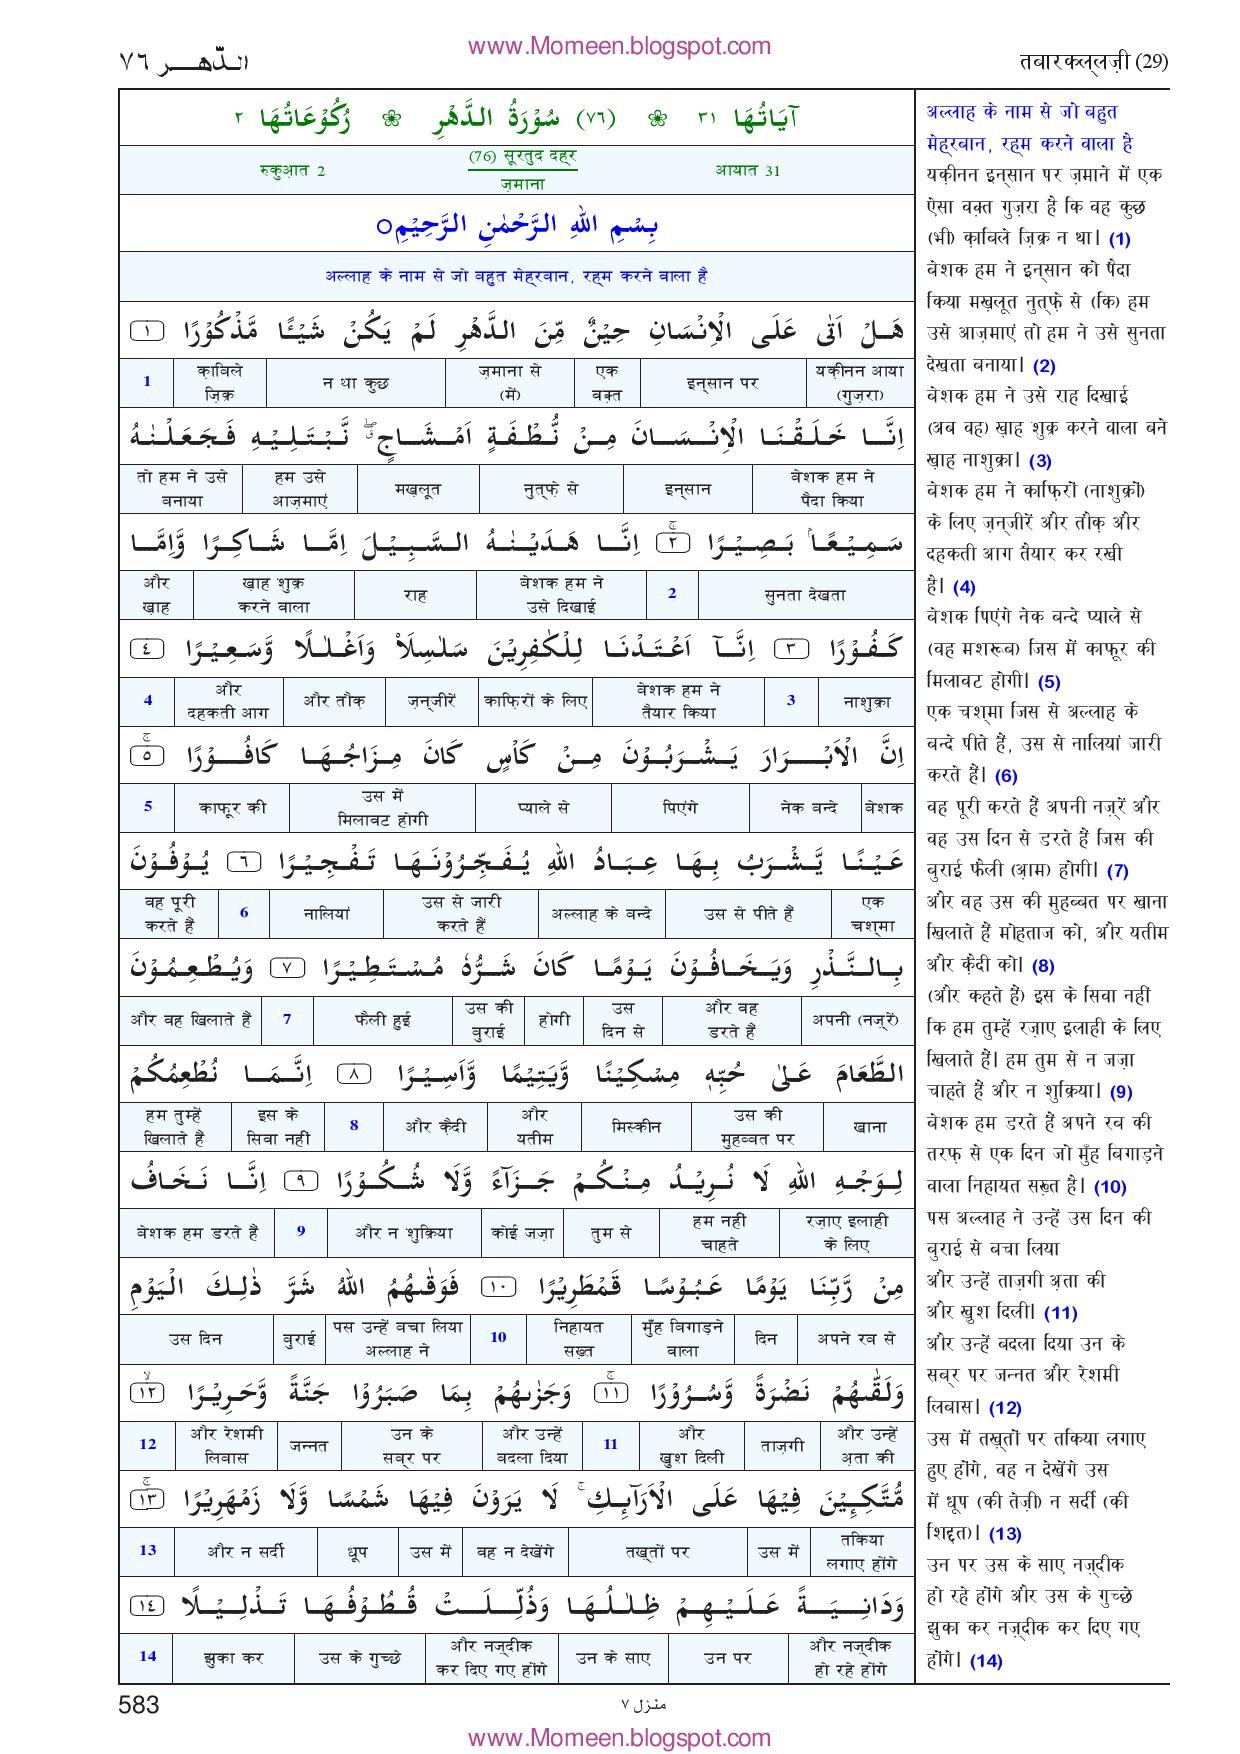 www.Momeen.blogspot.com
الدّهر ٧٦
तबारकल्लज़ी (29)
آيَاتُهَا ٣١ ❀ (٧٦) سُوْرَةُ الدَّهْرِ ❀ رُكُوْعَاتُهَا ٢
रुकुआ़त 2 (76) सूरतुद दह्‌र आयात 31
ज़माना
بِسْمِ اللهِ الرَّحْمٰنِ الرَّحِيْمِ○
अल्लाह के नाम से जो बहुत मेह्‌रबान, रह्‌म करने वाला है
هَلْ اَتٰى عَلَى الْاِنْسَانِ حِيْنٌ مِّنَ الدَّهْرِ لَمْ يَكُنْ شَيْـًٔا مَّذْكُوْرًا ١
1 क़ाबिले न था कुछ ज़माना से एक इन्सान पर यक़ीनन आया
ज़िक्र (में) वक़्त (गुज़रा)
اِنَّا خَلَقْنَا الْاِنْسَانَ مِنْ نُّطْفَةٍ اَمْشَاجٍ ۖ نَّبْتَلِيْهِ فَجَعَلْنٰهُ
तो हम ने उसे हम उसे मख़्लूत नुत्फ़े से इन्सान बेशक हम ने
बनाया आज़माएं पैदा किया
سَمِيْعًۢا بَصِيْرًا ٢ اِنَّا هَدَيْنٰهُ السَّبِيْلَ اِمَّا شَاكِرًا وَّاِمَّا
और ख़ाह शुक्र राह बेशक हम ने 2 सुनता देखता
ख़ाह करने वाला उसे दिखाई
كَفُوْرًا ٣ اِنَّآ اَعْتَدْنَا لِلْكٰفِرِيْنَ سَلٰسِلَا۟ وَاَغْلٰلًا وَّسَعِيْرًا ٤
4 और और तौक़ ज़न्जीरें काफ़िरों के लिए बेशक हम ने 3 नाशुक्रा
दहकती आग तैयार किया
اِنَّ الْاَبْرَارَ يَشْرَبُوْنَ مِنْ كَاْسٍ كَانَ مِزَاجُهَا كَافُوْرًا ٥
5 काफूर की उस में प्याले से पिएंगे नेक बन्दे बेशक
मिलावट होगी
عَيْنًا يَّشْرَبُ بِهَا عِبَادُ اللهِ يُفَجِّرُوْنَهَا تَفْجِيْرًا ٦ يُوْفُوْنَ
वह पूरी 6 नालियां उस से जारी अल्लाह के बन्दे उस से पीते हैं एक
करते हैं करते हैं चश्मा
بِالنَّذْرِ وَيَخَافُوْنَ يَوْمًا كَانَ شَرُّهٗ مُسْتَطِيْرًا ٧ وَيُطْعِمُوْنَ
और वह खिलाते हैं 7 फैली हुई उस की होगी उस और वह अपनी (नज़्रें)
बुराई दिन से डरते हैं
الطَّعَامَ عَلٰى حُبِّهٖ مِسْكِيْنًا وَّيَتِيْمًا وَّاَسِيْرًا ٨ اِنَّمَا نُطْعِمُكُمْ
हम तुम्हें इस के 8 और कै़दी और मिस्कीन उस की खाना
खिलाते हैं सिवा नहीं यतीम मुहब्बत पर
لِوَجْهِ اللهِ لَا نُرِيْدُ مِنْكُمْ جَزَآءً وَّلَا شُكُوْرًا ٩ اِنَّا نَخَافُ
बेशक हम डरते हैं 9 और न शुक्रिया कोई जज़ा तुम से हम नहीं रज़ाए इलाही
चाहते के लिए
مِنْ رَّبِّنَا يَوْمًا عَبُوْسًا قَمْطَرِيْرًا ١٠ فَوَقٰىهُمُ اللهُ شَرَّ ذٰلِكَ الْيَوْمِ
उस दिन बुराई पस उन्हें बचा लिया 10 निहायत मुँह बिगाड़ने दिन अपने रब से
अल्लाह ने सख़्त वाला
وَلَقّٰىهُمْ نَضْرَةً وَّسُرُوْرًا ١١ وَجَزٰىهُمْ بِمَا صَبَرُوْا جَنَّةً وَّحَرِيْرًا ١٢
12 और रेशमी जन्नत उन के और उन्हें 11 और ताज़गी और उन्हें
लिबास सब्‌र पर बदला दिया खुश दिली अ़ता की
مُّتَّكِـِٕيْنَ فِيْهَا عَلَى الْاَرَآىِٕكِ ۚ لَا يَرَوْنَ فِيْهَا شَمْسًا وَّلَا زَمْهَرِيْرًا ١٣
13 और न सर्दी धूप उस में वह न देखेंगे तख़्तों पर उस में तकिया
लगाए होंगे
وَدَانِيَةً عَلَيْهِمْ ظِلٰلُهَا وَذُلِّلَتْ قُطُوْفُهَا تَذْلِيْلًا ١٤
14 झुका कर उस के गुच्छे और नज़्दीक उन के साए उन पर और नज़्दीक
कर दिए गए होंगे हो रहे होंगे
अल्लाह के नाम से जो बहुत
मेह्‌रबान, रह्‌म करने वाला है
यक़ीनन इन्सान पर ज़माने में एक
ऐसा वक़्त गुज़रा है कि वह कुछ
(भी) क़ाबिले ज़िक्र न था। (1)
बेशक हम ने इन्सान को पैदा
किया मख़्लूत नुत्फ़े से (कि) हम
उसे आज़माएं तो हम ने उसे सुनता
देखता बनाया। (2)
बेशक हम ने उसे राह दिखाई
(अब वह) ख़ाह शुक्र करने वाला बने
ख़ाह नाशुक्रा। (3)
बेशक हम ने काफ़िरों (नाशुक्रों)
के लिए ज़न्जीरें और तौक़ और
दहकती आग तैयार कर रखी
है। (4)
बेशक पिएंगे नेक बन्दे प्याले से
(वह मशरूब) जिस में काफूर की
मिलावट होगी। (5)
एक चश्मा जिस से अल्लाह के
बन्दे पीते हैं, उस से नालियां जारी
करते हैं। (6)
वह पूरी करते हैं अपनी नज़्रें और
वह उस दिन से डरते हैं जिस की
बुराई फैली (आ़म) होगी। (7)
और वह उस की मुहब्बत पर खाना
खिलाते हैं मोहताज को, और यतीम
और कै़दी को। (8)
(और कहते हैं) इस के सिवा नहीं
कि हम तुम्हें रज़ाए इलाही के लिए
खिलाते हैं। हम तुम से न जज़ा
चाहते हैं और न शुक्रिया। (9)
बेशक हम डरते हैं अपने रब की
तरफ़ से एक दिन जो मुँह बिगाड़ने
वाला निहायत सख़्त है। (10)
पस अल्लाह ने उन्हें उस दिन की
बुराई से बचा लिया
और उन्हें ताज़गी अ़ता की
और खुश दिली। (11)
और उन्हें बदला दिया उन के
सब्‌र पर जन्नत और रेशमी
लिबास। (12)
उस में तख़्तों पर तकिया लगाए
हुए होंगे, वह न देखेंगे उस
में धूप (की तेज़ी) न सर्दी (की
शिद्दत)। (13)
उन पर उस के साए नज़्दीक
हो रहे होंगे और उस के गुच्छे
झुका कर नज़्दीक कर दिए गए
होंगे। (14)
583
منزل ٧
www.Momeen.blogspot.com